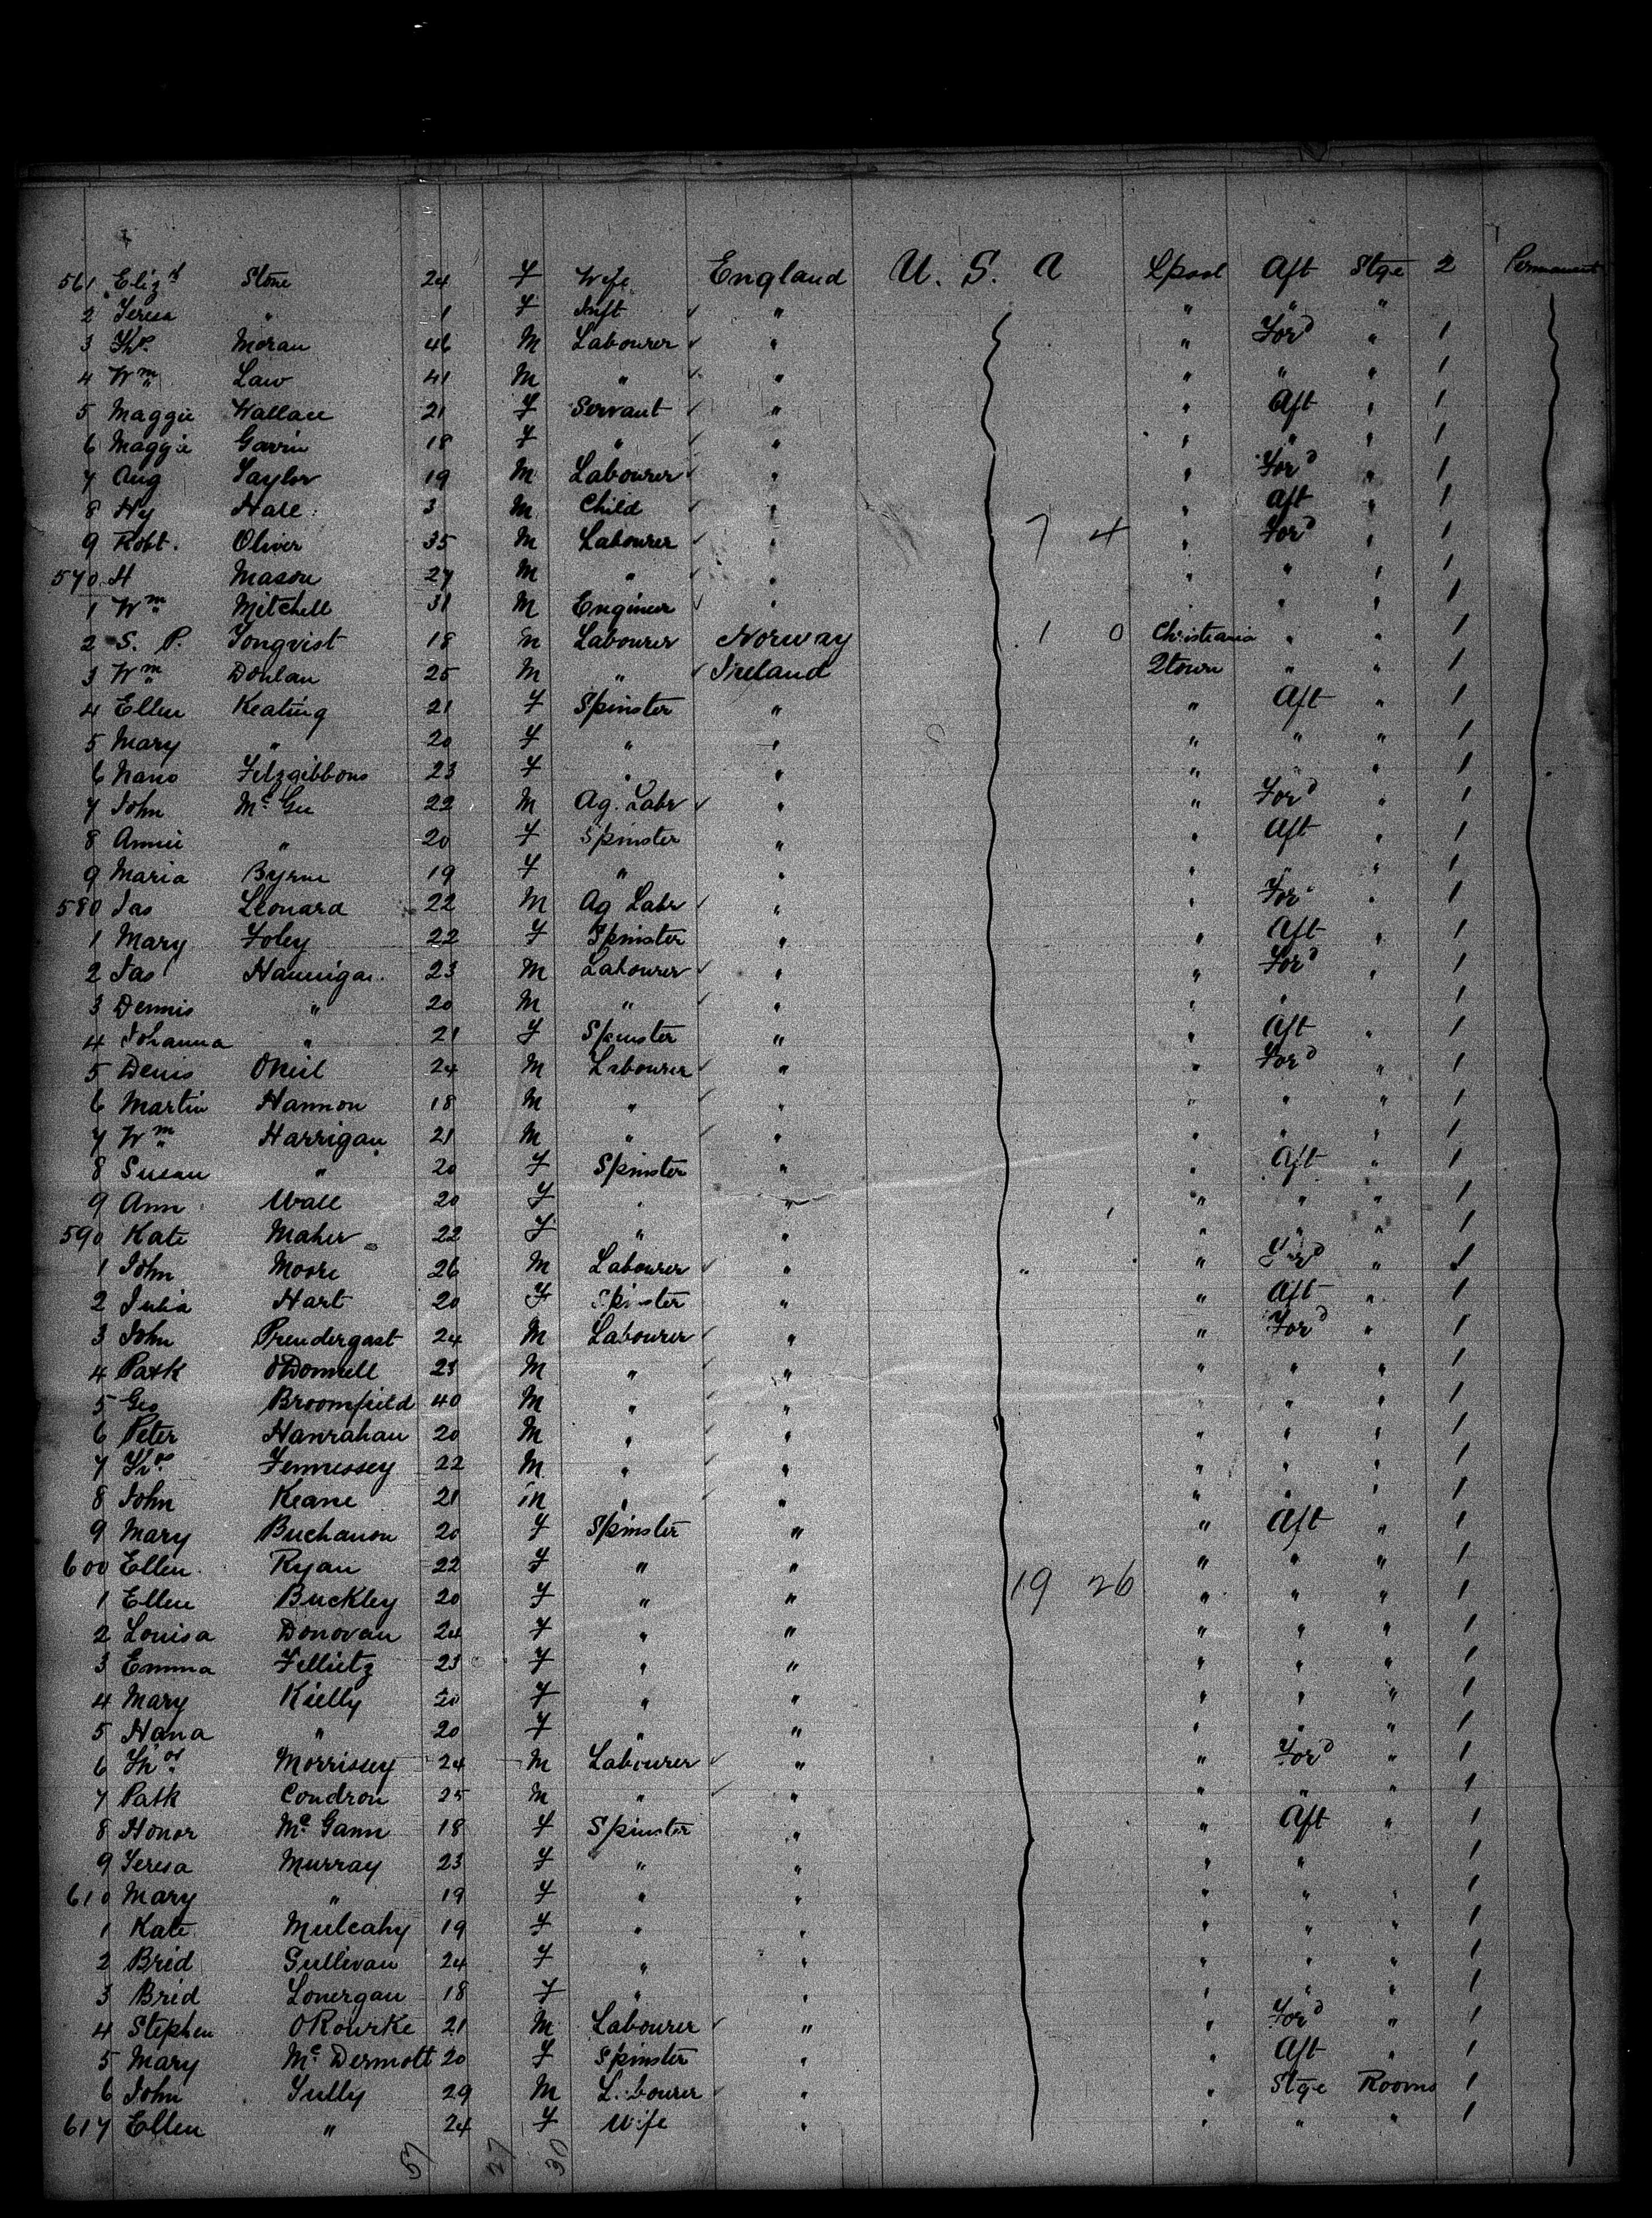 561 Eliz.th Stone 24 F Wife England U. S. A Lpool Aft Stge 2 Permanent
2 Teresa " 1 F Inft " " " "
3 Tho.s Moran 46 M Labourer " " For.d " 1
4 W.m Law 41 M " " " " " 1
5 Maggie Wallace 21 F Servant " " Aft " 1
6 Maggie Gavin 18 F " " " " " 1
7 Aug Taylor 19 M Labourer " " For.d " 1
8 Hy Hall 3 M Child " " Aft " 1
9 Robt. Oliver 35 M Labourer " 7 4 " For.d " 1
570 H Mason 27 M " " " " " 1
1 W.m Mitchell 31 M Engineer " " " " 1
2 S. P. 18 M Labourer Norway 1 0 Christiania " " 1
3 W.m Donlan 25 M " Ireland Qtown " " 1
4 Ellen Keating 21 F Spinster " " Aft " 1
5 Mary " 20 F " " " " " 1
6 Nano Fitzgibbons 23 F " " " " " 1
7 John Mc Gee 22 M Ag. Labr " " For.d " 1
8 Annie " 20 F Spinster " " Aft " 1
9 Maria Byrne 19 F " " " " " 1
580 Jas Leonard 22 M Ag Labr " " For.d " 1
1 Mary Foley 22 F Spinster " " Aft " 1
2 Jas Hannigan 23 M Labourer " " For.d " 1
3 Dennis " 20 M " " " " 1
4 Johanna " 21 F Spinster " " Aft " 1
5 Denis ONeil 24 M Labourer " " For.d " 1
6 Martin Hannon 18 M " " " " " 1
7 W.m Harrigan 21 M " " " " " 1
8 Susan " 20 F Spinster " " Aft " 1
9 Ann Wall 20 F " " " " " 1
590 Kate Maher 22 F " " " " " 1
1 John Moore 26 M Labourer " " " For.d " 1
2 Julia Hart 20 F Spinster " " Aft " 1
3 John Prendergast 24 M Labourer " " For.d " 1
4 Patk ODonnell 23 M " " " " " 1
5 Geo Broomfield 40 M " " " " " 1
6 Peter Hanrahan 20 M " " " " " 1
7 Tho.s Fennessey 22 M " " " " " 1
8 John Keane 21 M " " " " " 1
9 Mary Buchanon 20 F Spinster " " Aft " 1
600 Ellen Ryan 22 F " " " " " 1
1 Ellen Buckley 20 F " " 19 26 " " " 1
2 Louisa Donovan 24 F " " " " " 1
3 Emma 23 F " " " " " 1
4 Mary Kielly 20 F " " " " " 1
5 Hana " 20 F " " " " " 1
6 Tho.s Morrissey 24 M Labourer " " For.d " 1
7 Patk Condron 25 M " " " " " 1
8 Honor Mc Gann 18 F Spinster " " Aft " 1
9 Teresa Murray 23 F " " " " 1
610 Mary " 19 F " " " " " 1
1 Kate Mulcahy 19 F " " " " " 1
2 Brid Sullivan 24 F " " " " " 1
3 Brid Lonergan 18 F " " " " " 1
4 Stephen ORourke 21 M Labourer " " For.d " 1
5 Mary Mc Dermott 20 F Spinster " " Aft " 1
6 John Tully 29 M Labourer " " Stge Rooms 1
617 Ellen " 24 F Wife " " " " 1
57 27 30